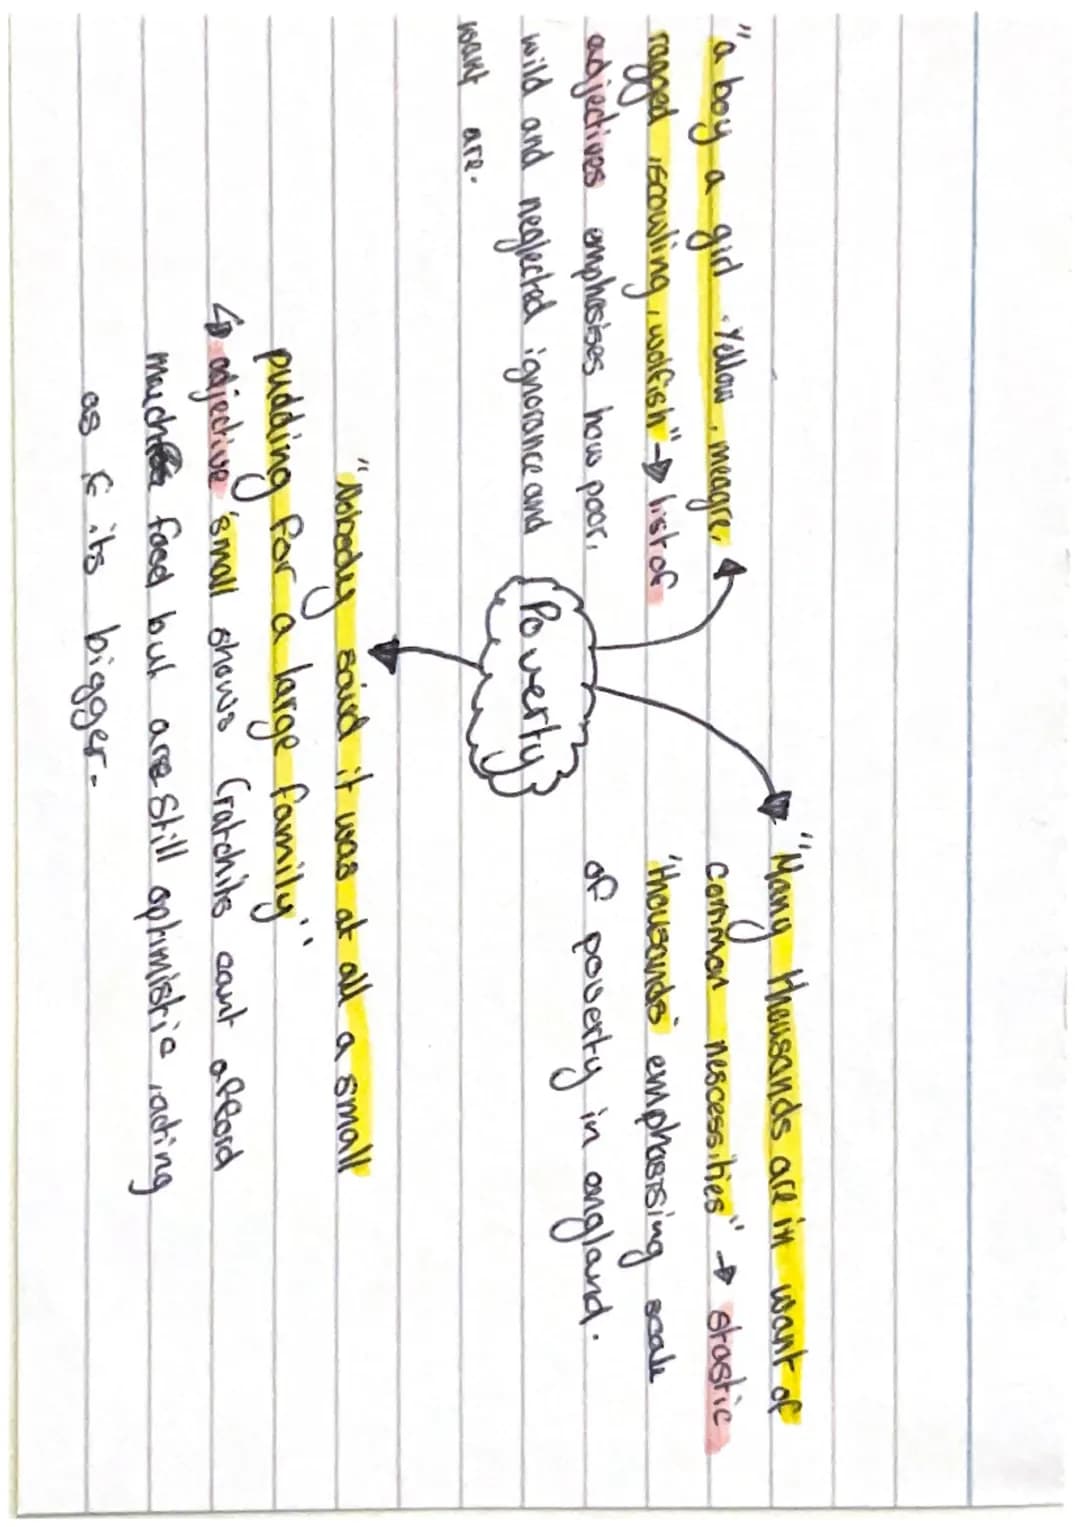 "a boy a girl . Yellow, meagre,
ragged, scowling, wolfish" → list of
adjectives emphasises how poor,
wild and neglected ignorance and
want are.
Poverty
"Many thousands are in want of
common nescessities" → stastic
'thousands' emphasising scale
of poverty in england.
"Nobody said it was at all a small
pudding for a large family"
↳ adjective 'small' shows Cratchits cant afford
much food but are still optimistic, acting
as if its bigger.